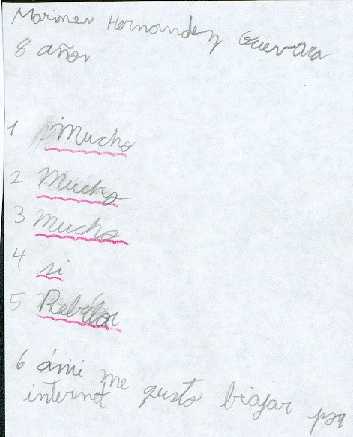 Hernandez Guevara
8 años
1 Mucho
2 Mucho
3 Mucho
4 si
5
6 ámi me gusta biajar por
internet